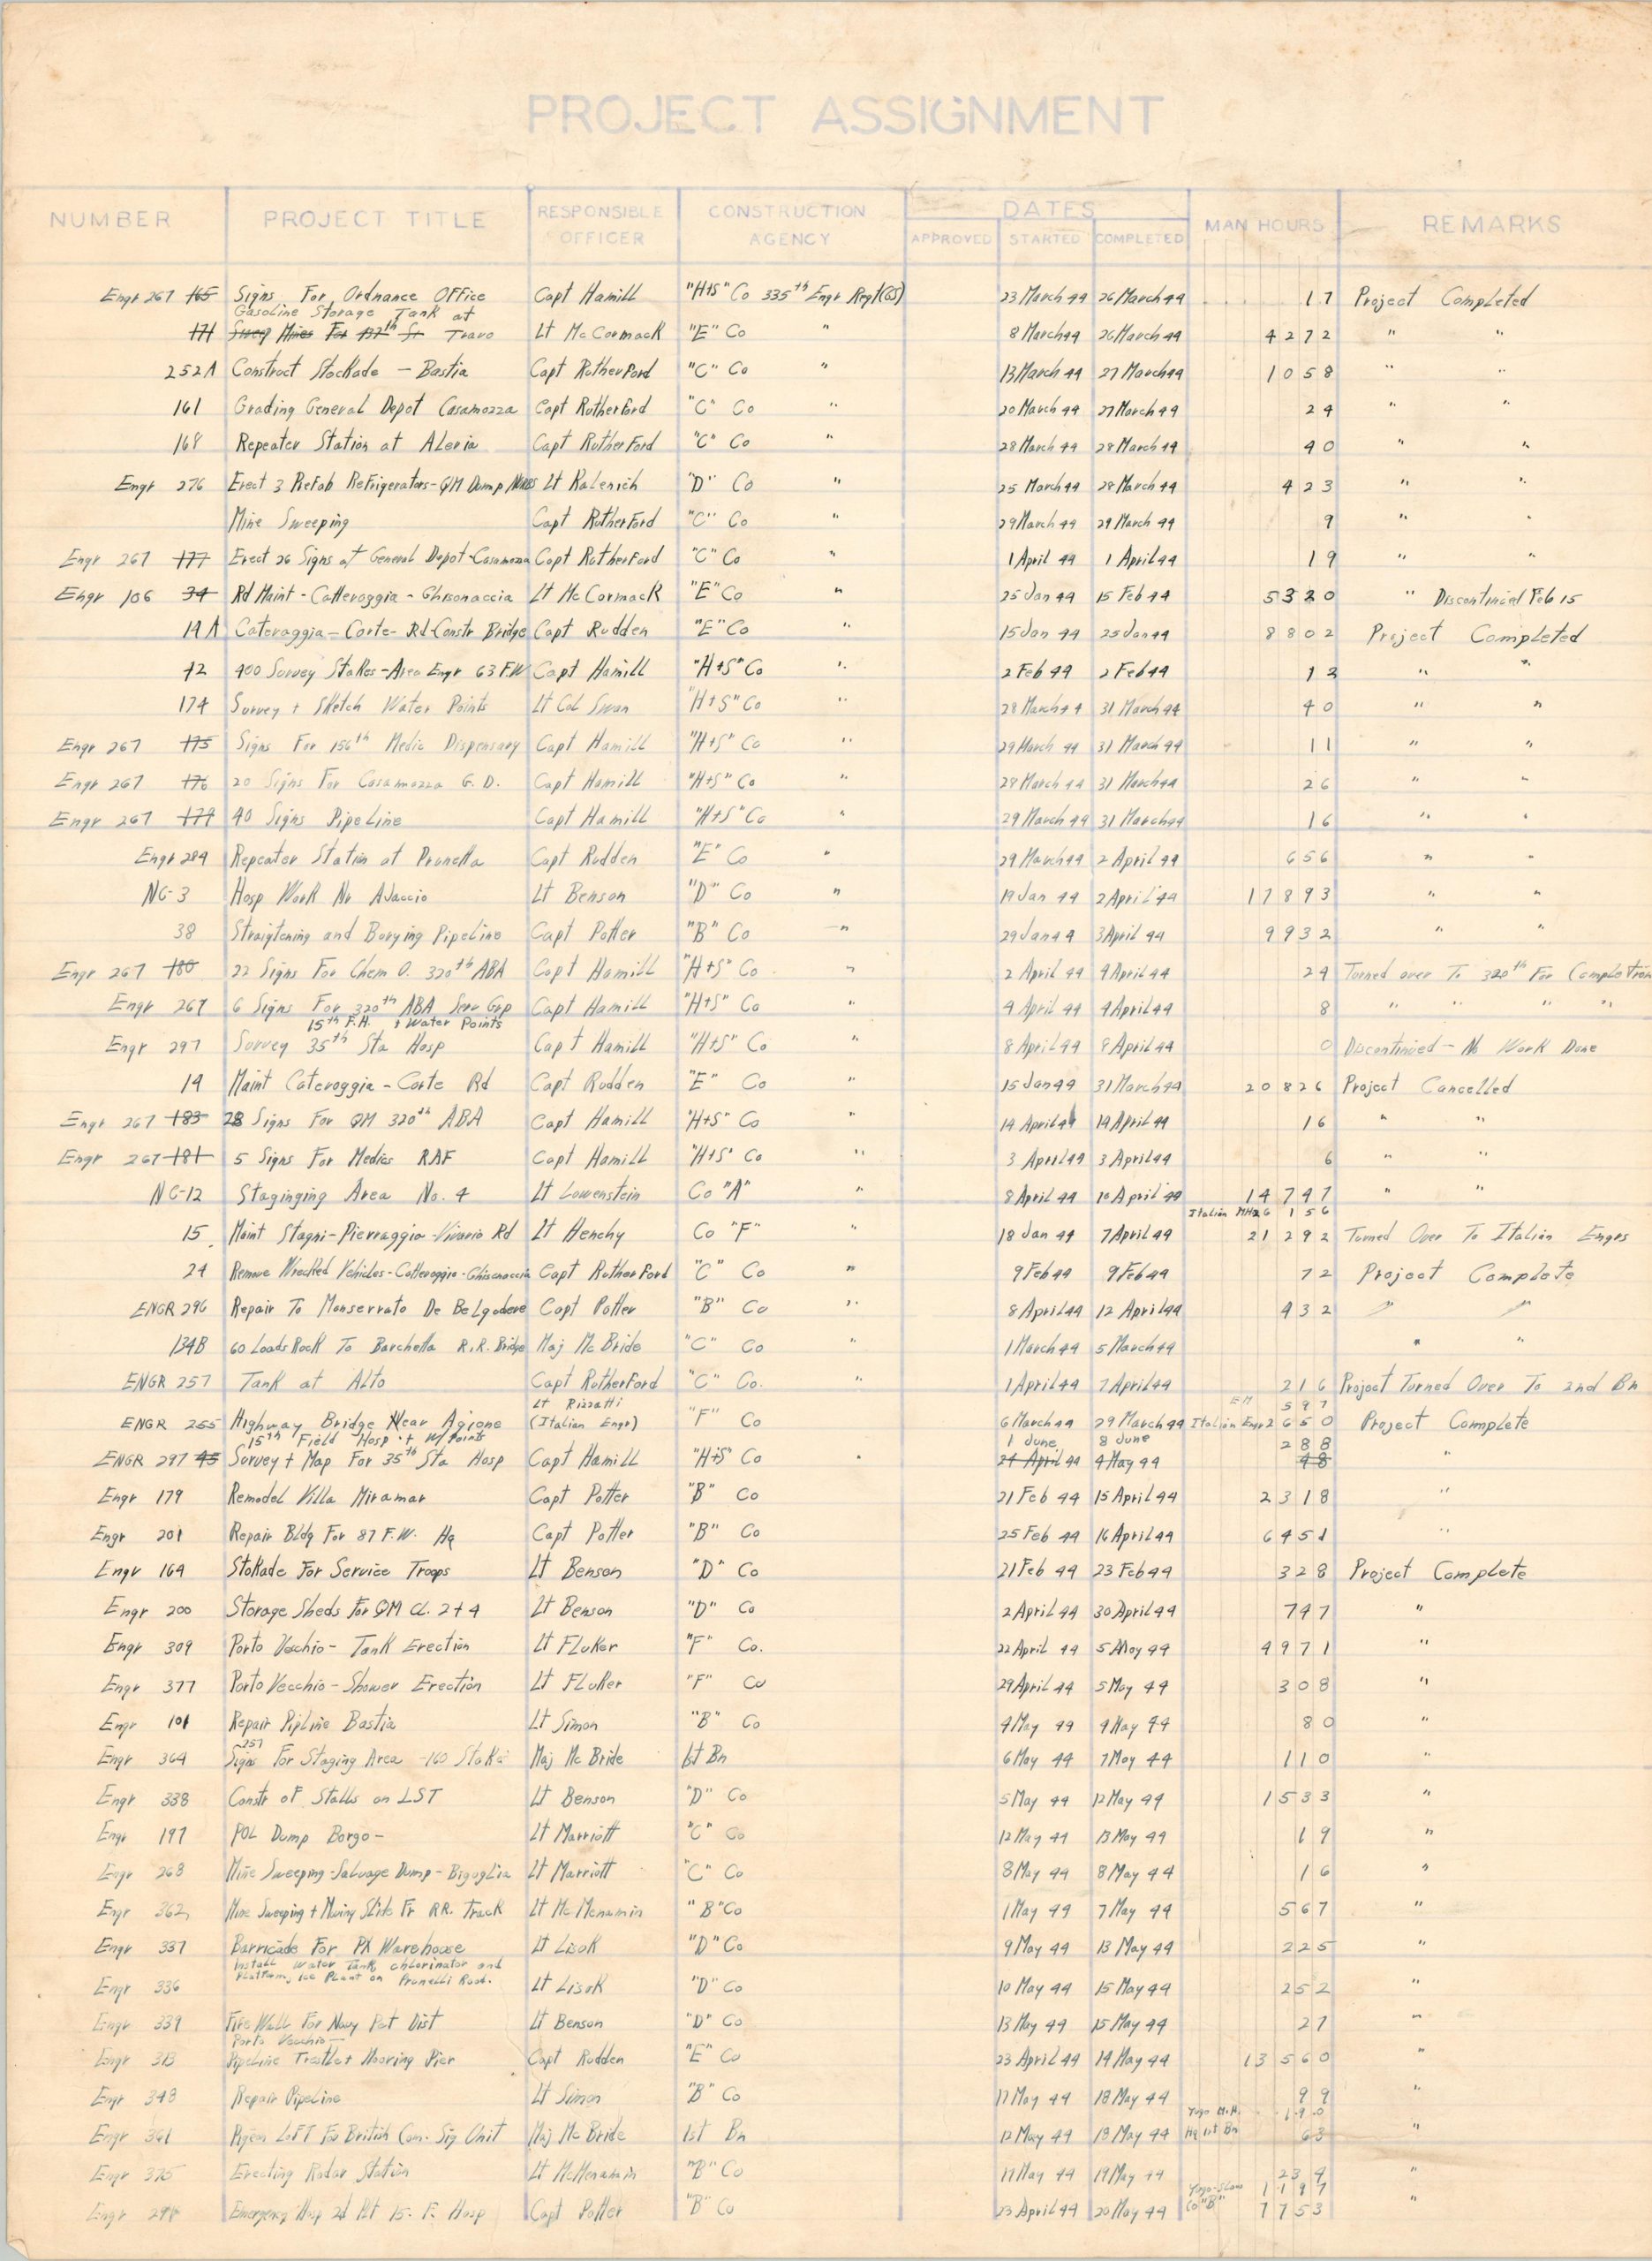 PROJECT ASSIGNMENT
NUMBER PROJECT TITLE RESPONSIBLE OFFICER CONSTRUCTION AGENCY DATES APPROVED STARTED COMPLETED MAN HOURS REMARKS
Engr 267 165 Signs For Ordnance Office Capt Hamill "H+S" Co 335th Engr Regt (GS) 23 March 44 26 March 44 17 Project Completed
Gasoline Storage Tank at
171 Travo Lt McCormack "E" Co " 8 March 44 26 March 44 4272 " "
252A Construct Stockade - Bastia Capt Rutherford "C" Co " 13 March 44 27 March 44 1058 " "
161 Grading General Depot Casamozza Capt Rutherford "C" Co " 20 March 44 27 March 44 24 " "
168 Repeater Station at Aleria Capt Rutherford "C" Co " 28 March 44 28 March 44 40 " "
Engr 276 Erect 3 Prefab Refrigerators - QM Dump Lt Kalenich "D" Co " 25 March 44 28 March 44 423 " "
Mine Sweeping Capt Rutherford "C" Co " 29 March 44 29 March 44 9 " "
Engr 267 177 Erect 26 Signs at General Depot - Casamozza Capt Rutherford "C" Co " 1 April 44 1 April 44 19 " "
Engr 106 34 Rd Maint - Catteroggia - Ghisonaccia Lt McCormack "E" Co " 25 Jan 44 15 Feb 44 5320 " Discontinied Feb 15
14A Cateraggia - Corte - Rd - Constr Bridge Capt Rudden "E" Co " 15 Jan 44 25 Jan 44 8802 Project Completed
42 400 Survey Stakes - Area Engr 63 F.W. Capt Hamill "H+S" Co " 2 Feb 44 2 Feb 44 13 " "
174 Survey + Sketch Water Points Lt Col Swan "H+S" Co " 28 March 44 31 March 44 40 " "
Engr 267 175 Signs For 156th Medic Dispensary Capt Hamill "H+S" Co " 29 March 44 31 March 44 11 " "
Engr 267 176 20 Signs For Casamozza G.D. Capt Hamill "H+S" Co " 28 March 44 31 March 44 26 " "
Engr 267 179 40 Signs Pipeline Capt Hamill "H+S" Co " 29 March 44 31 March 44 16 " "
Engr 284 Repeater Station at Prunella Capt Rudden "E" Co " 29 March 44 2 April 44 656 " "
NC-3 Hosp Work Nr Ajaccio Lt Benson "D" Co " 19 Jan 44 2 April 44 17893 " "
38 Straigtening and Burying Pipeline Capt Potter "B" Co " 29 Jan 44 3 April 44 9932 " "
Engr 267 180 22 Signs For Chem O. 320th ABA Capt Hamill "H+S" Co " 2 April 44 4 April 44 24 Turned over To 320th For Completion
Engr 267 6 Signs For 320th ABA Serv Grp Capt Hamill "H+S" Co " 4 April 44 4 April 44 8 " " " "
15th F.H. + Water Points
Engr 297 Survey 35th Sta Hosp Capt Hamill "H+S" Co " 8 April 44 8 April 44 0 Discontinued - No Work Done
14 Maint Cateroggia - Corte Rd Capt Rudden "E" Co " 15 Jan 44 31 March 44 20826 Project Cancelled
Engr 267 183 28 Signs For QM 320th ABA Capt Hamill "H+S" Co 14 April 44 14 April 44 16 " "
Engr 267 181 5 Signs For Medics RAF Capt Hamill "H+S" Co " 3 April 44 3 April 44 6 " "
NC-12 Staginging Area No. 4 Lt Lowenstein Co "A" " 8 April 44 10 April 44 14747 " "
Italian MH 26 156
15 Maint Stagni - Pierraggia - Vivario Rd Lt Henchy Co "F" " 18 Jan 44 7 April 44 21292 Turned Over To Italian Engrs
24 Remove Wrecked Vehicles - Catteroggio - Ghisonaccia Capt Rutherford "C" Co " 9 Feb 44 9 Feb 44 72 Project Complete
ENGR 296 Repair To Monserrato De Belgodere Capt Potter "B" Co " 8 April 44 12 April 44 432 " "
134B 60 Loads Rock To Barchetta R.R. Bridge Maj McBride "C" Co " 1 March 44 5 March 44 " "
ENGR 257 Tank at Alto Capt Rutherford "C" Co. " 1 April 44 7 April 44 216 Project Turned Over To 2nd Bn
Lt Rizzatti EM 597
ENGR 255 Highway Bridge Near Agione (Italian Engr) "F" Co 6 March 44 29 March 44 Italian Engr 2650 Project Complete
15th Field Hosp + W/Points 1 June 8 June 288
ENGR 297 45 Survey + Map For 35th Sta Hosp Capt Hamill "H+S" Co " 24 April 44 4 May 44 48 "
Engr 179 Remodel Villa Miramar Capt Potter "B" Co 21 Feb 44 15 April 44 2318 "
Engr 201 Repair Bldg For 87 F.W. Hq Capt Potter "B" Co 25 Feb 44 16 April 44 6451 "
Engr 164 Stokade For Service Troops Lt Benson "D" Co 21 Feb 44 23 Feb 44 328 Project Complete
Engr 200 Storage Sheds For QM Cl. 2+4 Lt Benson "D" Co 2 April 44 30 April 44 747 "
Engr 309 Porto Vecchio - Tank Erection Lt Fluker "F" Co. 22 April 44 5 May 44 4971 "
Engr 377 Porto Vecchio - Shower Erection Lt Fluker "F" Co 29 April 44 5 May 44 308 "
Engr 101 Repair Pipline Bastia Lt Simon "B" Co 4 May 44 9 May 44 80 "
257
Engr 364 Signs For Staging Area - 160 Stakes Maj McBride 1st Bn 6 May 44 7 May 44 110 "
Engr 338 Constr of Stalls on LST Lt Benson "D" Co 5 May 44 12 May 44 1533 "
Engr 197 POL Dump Borgo - Lt Marriott "C" Co 12 May 44 13 May 44 19 "
Engr 268 Mine Sweeping - Salvage Dump - Biguglia Lt Marriott "C" Co 8 May 44 8 May 44 16 "
Engr 362 Mine Sweeping + Moving Slide Fr RR. Track Lt McMenamin "B" Co 1 May 44 7 May 44 567 "
Engr 337 Barricade For PX Warehouse Lt Lisok "D" Co 9 May 44 13 May 44 225 "
Install Water Tank, chlorinator and
Engr 336 Platform, Ice Plant on Prunelli Road. Lt Lisok "D" Co 10 May 44 15 May 44 252 "
Engr 339 Fire Wall For Navy Pet Dist Lt Benson "D" Co 13 May 44 15 May 44 27 "
Porto Vecchio -
Engr 313 Pipeline Trestle + Mooring Pier Capt Rudden "E" Co 23 April 44 14 May 44 13560 "
Engr 348 Repair Pipeline Lt Simon "B" Co 17 May 44 18 May 44 99 "
Yugo M.H. 190
Engr 341 Pigeon Loft For British Com. Sig Unit Maj McBride 1st Bn 12 May 44 18 May 44 Hq 1st Bn 63 "
Engr 375 Erecting Radar Station Lt McMenamin "B" Co 17 May 44 19 May 44 239 "
Yugo-Slav 1197
Engr 298 Emergency Hosp 2d Plt 15. F. Hosp Capt Potter "B" Co 23 April 44 20 May 44 Co "B" 7753 "